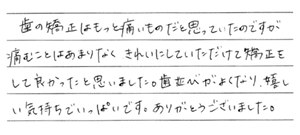 歯の矯正はもっと痛いものだと思っていたのですが
痛むことはあまりなく きれいにしていただけて矯正を
して良かったと思いました。歯並びがよくなり、嬉し
い気持ちでいっぱいです。ありがとうございました。